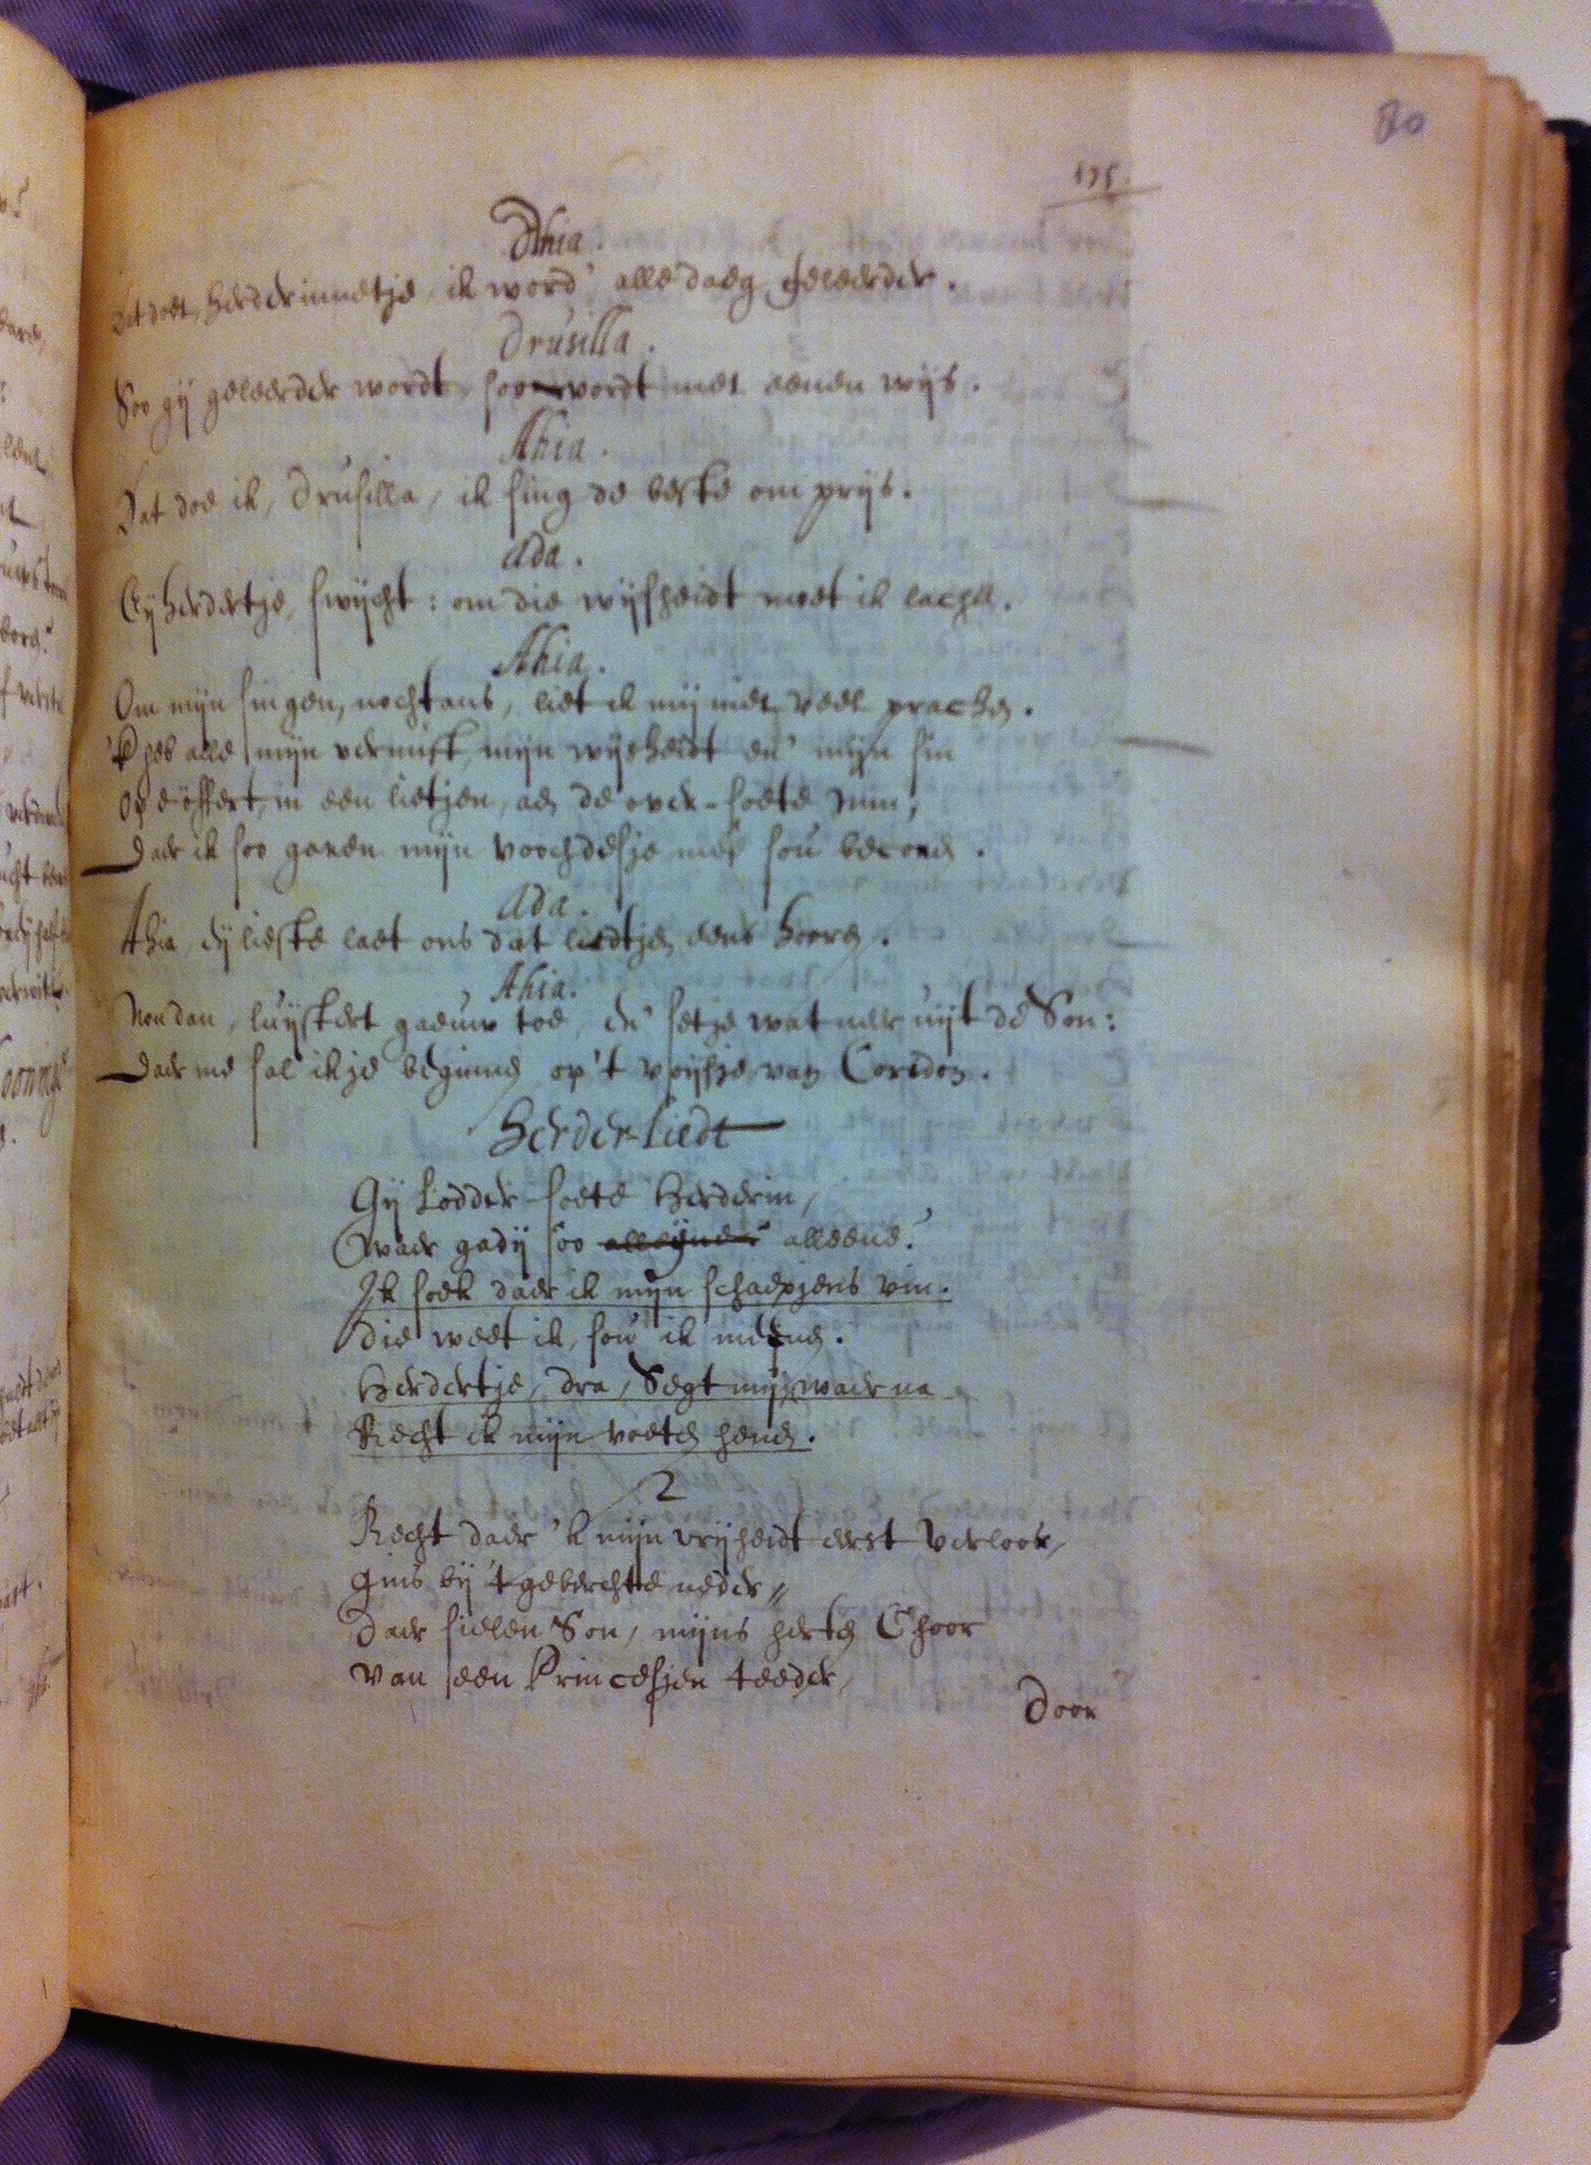 80
175.
Ahia.
Dat doet, herderinnetje, ik word' alle daeg geleerder.
Drusilla.
Soo gij geleerder wordt, soo wordt met eenen wijs.
Ahia.
Dat doe ik, Drusilla, ik sing de beste om prijs.
Ada.
Eij herdertje, swijcht: om die wijsheidt moet ik lachen.
Ahia.
Om mijn singen, nochtans, liet ik mij niet veel prachen.
'k heb alle mijn vernuft, mijn wijsheidt en' mijn sin
op eöffert, in een lietjen, aen de over-soete min,
Daer ik soo garen mijn voochdesje mee sou becoren.
Ada.
Ahia, dij lieste laet ons dat liedtjen eens hooren.
Ahia.
Nou dan, luijstert gaeuw toe, en' setje wat neer uijt de Son:
Daer me sal ik je beginnen op 't wijsje van Coridon.
Herder-Liedt
Gij Lodder-soete Herderin,
Waer gadij soo alleene?
Ik soek daer ik mijn schaepjens vin.
Die weet ik, sou ik meenen.
Herdertje, dra, Segt mij, waer na
Recht ik mijn voeten henen.
2
Recht daer 'k mijn vrijheidt eerst verloor,
gins bij 't geberchte neder,,
Daer sielen Son, mijns herten Choor
van een Princesjen teeder,
Door